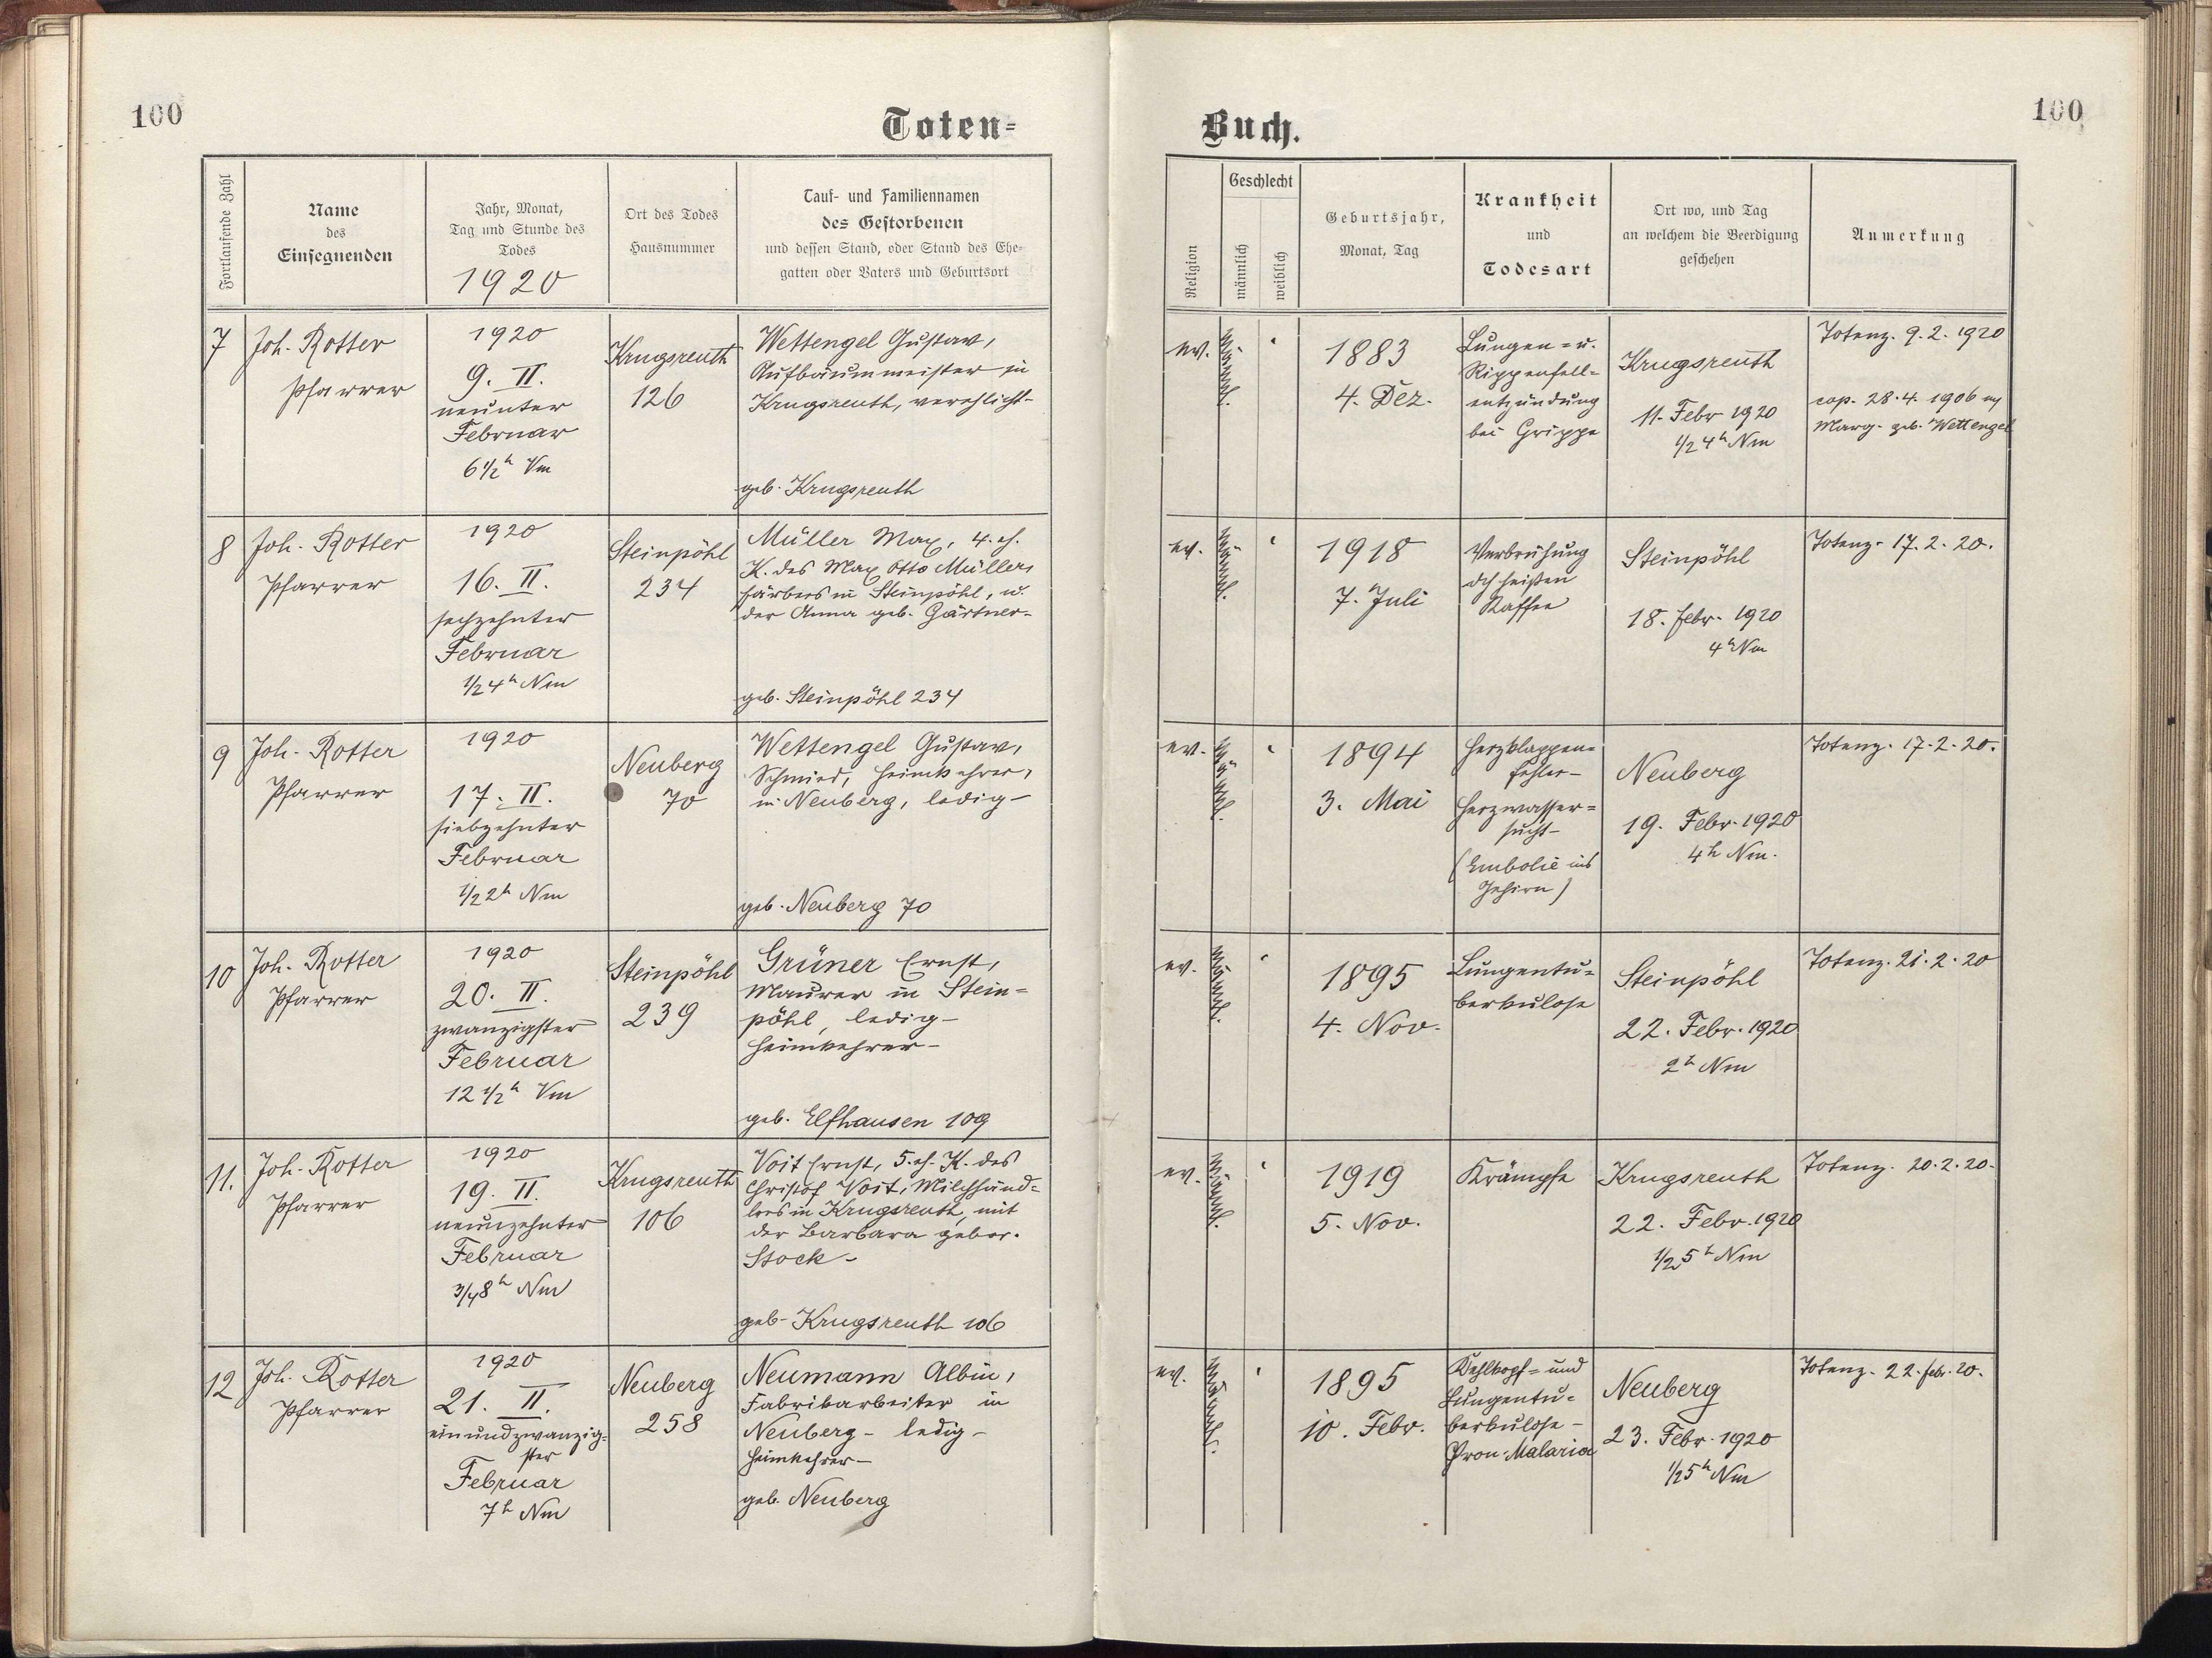 100
Toten-
Fortlaufende Zahl
Name
des
Einsegnenden
Jahr, Monat,
Tag und Stunde des
Todes
1920
Ort des Todes
Hausnummer
Tauf- und Familiennamen
des Gestorbenen
und dessen Stand, oder Stand des Ehe-
gatten oder Vaters und Geburtsort
7
Joh. Rotter
Pfarrer
1920
9. II.
neunter
Februar
6 1/2 h Vm
Krugsreuth
126
Wettengel Gustav,
Aufbäummeister in
Krugsreuth, verehlicht-
geb. Krugsreuth
8
Joh. Rotter
Pfarrer
1920
16. II.
sechzehnter
Februar
1/2 4 h Nm
Steinpöhl
234
Müller Max, 4. eh.
K. des Max Otto Müller,
Färbers in Steinpöhl, u.
der Anna geb. Gärtner-
geb. Steinpöhl 234
9
Joh. Rotter
Pfarrer
1920
17. II.
siebzehnter
Februar
1/2 2 h Nm
Neuberg
70
Wettengel Gustav,
Schmied, Heimkehrer,
in Neuberg, ledig-
geb. Neuberg 70
10
Joh. Rotter
Pfarrer
1920
20. II.
zwanzigster
Februar
12 1/2 h Vm
Steinpöhl
239
Grüner Ernst,
Maurer in Stein=
pöhl, ledig-
Heimkehrer-
geb. Elfhausen 109
11.
Joh. Rotter
Pfarrer
1920
19. II.
neunzehnter
Februar
3/4 8 h Nm
Krugsreuth
106
Voit Ernst, 5. eh. K. des
Christof Voit, Milchhänd=
lers in Krugsreuth, mit
der Barbara gebor.
Stock-
geb. Krugsreuth 106
12
Joh. Rotter
Pfarrer
1920
21. II.
einundzwanzig=
ster
Februar
7 h Nm
Neuberg
258
Neumann Albin,
Fabrikarbeiter in
Neuberg - ledig-
Heimkehrer-
geb. Neuberg
100
Buch.
Religion
Geschlecht
männlich
weiblich
Geburtsjahr,
Monat, Tag
Krankheit
und
Todesart
Ort wo, und Tag
an welchem die Beerdigung
geschehen
Anmerkung
ev.
männl.
1883
4. Dez.
Lungen= u.
Rippenfell=
entzündung
bei Grippe
Krugsreuth
11. Febr 1920
1/2 4 h Nm
Totenz. 9.2.1920
cop. 28.4.1906 m
Marg. geb. Wettengel
ev.
männl.
1918
7. Juli
Verbrühung
dch heißen
Kaffee
Steinpöhl
18. Febr. 1920
4 h Nm
Totenz. 17.2.20.
ev.
männl.
1894
3. Mai
Herzklappen=
fehler-
Herzwasser=
sucht-
(Embolie ins
Gehirn)
Neuberg
19. Febr. 1920
4 h Nm.
Totenz. 17.2.20.
ev.
männl.
1895
4. Nov.
Lungentu=
berkulose
Steinpöhl
22. Febr. 1920
2 h Nm
Totenz. 21.2.20
ev.
männl.
1919
5. Nov.
Krämpfe
Krugsreuth
22. Febr. 1920
1/2 5 h Nm
Totenz. 20.2.20.
ev.
männl.
1895
10. Febr.
Kehlkopf= und
Lungentu=
berkulose-
Malaria
Neuberg
23. Febr. 1920
1/2 5 h Nm
Totenz. 22. Febr. 20.